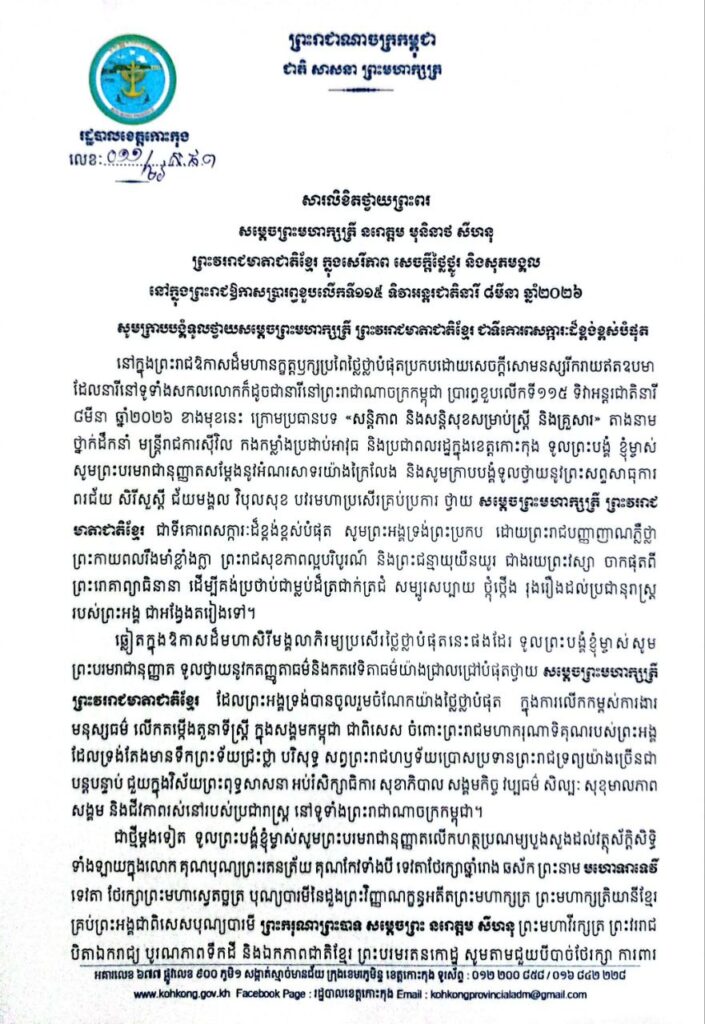 ព្រះរាជាណាចក្រកម្ពុជា
ជាតិ សាសនា ព្រះមហាក្សត្រ
រដ្ឋបាលខេត្តកោះកុង
លេខៈ
សារលិខិតថ្វាយព្រះពរ
សម្តេចព្រះមហាក្សត្រី នរោត្តម មុនិនាថ សីហនុ
ព្រះវររាជមាតាជាតិខ្មែរ ក្នុងសេរីភាព សេចក្តីថ្លៃថ្នូរ និងសុភមង្គល
នៅក្នុងព្រះរាជឱកាសប្រារព្ធខួបលើកទី១១៥ ទិវាអន្តរជាតិនារី ៨មីនា ឆ្នាំ២០២៦
សូមក្រាបបង្គំទូលថ្វាយសម្តេចព្រះមហាក្សត្រី ព្រះវររាជមាតាជាតិខ្មែរ ជាទីគោរពសក្ការៈដ៏ខ្ពង់ខ្ពស់បំផុត
នៅក្នុងព្រះរាជឱកាសដ៏មហានក្ខត្តឫក្សប្រពៃថ្លៃថ្លាបំផុតប្រកបដោយសេចក្តីសោមនស្សរីករាយឥតឧបមា
ដែលនារីនៅទូទាំងសកលលោកក៏ដូចជានារីនៅព្រះរាជាណាចក្រកម្ពុជា ប្រារព្ធខួបលើកទី១១៥ ទិវាអន្តរជាតិនារី
៨មីនា ឆ្នាំ២០២៦ ខាងមុខនេះ ក្រោមប្រធានបទ «សន្តិភាព និងសន្តិសុខសម្រាប់ស្ត្រី និងគ្រួសារ» តាងនាម
ថ្នាក់ដឹកនាំ មន្ត្រីរាជការស៊ីវិល កងកម្លាំងប្រដាប់អាវុធ និងប្រជាពលរដ្ឋក្នុងខេត្តកោះកុង ទូលព្រះបង្គំ ខ្ញុំម្ចាស់
សូមព្រះបរមរាជានុញ្ញាតសម្តែងនូវអំណរសាទរយ៉ាងក្រៃលែង និងសូមក្រាបបង្គំទូលថ្វាយនូវព្រះសព្ទសាធុការ
ពរជ័យ សិរីសួស្តី ជ័យមង្គល វិបុលសុខ បវរមហាប្រសើរគ្រប់ប្រការ ថ្វាយ សម្តេចព្រះមហាក្សត្រី ព្រះវររាជ
មាតាជាតិខ្មែរ ជាទីគោរពសក្ការៈដ៏ខ្ពង់ខ្ពស់បំផុត សូមព្រះអង្គទ្រង់ព្រះប្រកប ដោយព្រះរាជបញ្ញាញាណភ្លឺថ្លា
ព្រះកាយពលរឹងមាំខ្លាំងក្លា ព្រះរាជសុខភាពល្អបរិបូរណ៍ និងព្រះជន្មាយុយឺនយូរ ជាងរយព្រះវស្សា ចាកផុតពី
ព្រះរោគាព្យាធិនានា ដើម្បីគង់ប្រថាប់ជាម្លប់ដ៏ត្រជាក់ត្រជំ សម្បូរសប្បាយ ថ្កុំថ្កើង រុងរឿងដល់ប្រជានុរាស្ត្រ
របស់ព្រះអង្គ ជាអង្វែងតរៀងទៅ។
ឆ្លៀតក្នុងឱកាសដ៏មហាសិរីមង្គលាភិរម្យប្រសើរថ្លៃថ្លាបំផុតនេះផងដែរ ទូលព្រះបង្គំខ្ញុំម្ចាស់សូម
ព្រះបរមរាជានុញ្ញាត ទូលថ្វាយនូវកតញ្ញុតាធម៌និងកតវេទិតាធម៌យ៉ាងជ្រាលជ្រៅបំផុតថ្វាយ សម្តេចព្រះមហាក្សត្រី
ព្រះវររាជមាតាជាតិខ្មែរ ដែលព្រះអង្គទ្រង់បានចូលរួមចំណែកយ៉ាងថ្លៃថ្លាបំផុត ក្នុងការលើកកម្ពស់ការងារ
មនុស្សធម៌ លើកតម្កើងតួនាទីស្ត្រី ក្នុងសង្គមកម្ពុជា ជាពិសេស ចំពោះព្រះរាជមហាករុណាទិគុណរបស់ព្រះអង្គ
ដែលទ្រង់តែងមានទឹកព្រះទ័យជ្រះថ្លា បរិសុទ្ធ សព្វព្រះរាជហឫទ័យប្រោសប្រទានព្រះរាជទ្រព្យយ៉ាងច្រើនជា
បន្តបន្ទាប់ ជួយក្នុងវិស័យព្រះពុទ្ធសាសនា អប់រំសិក្សាធិការ សុខាភិបាល សង្គមកិច្ច វប្បធម៌ សិល្បៈ សុខុមាលភាព
សង្គម និងជីវភាពរស់នៅរបស់ប្រជារាស្ត្រ នៅទូទាំងព្រះរាជាណាចក្រកម្ពុជា។
ជាថ្មីម្តងទៀត ទូលព្រះបង្គំខ្ញុំម្ចាស់សូមព្រះបរមរាជានុញ្ញាតលើកហត្ថប្រណម្យបួងសួងដល់វត្ថុស័ក្តិសិទ្ធិ
ទាំងឡាយក្នុងលោក គុណបុណ្យព្រះរតនត្រ័យ គុណកែវទាំងបី ទេវតាថែរក្សាឆ្នាំរោង ឆស័ក ព្រះនាម មហោទរាទេវី
ទេវតា ថែរក្សាព្រះមហាស្វេតច្ឆត្រ បុណ្យបារមីនៃដួងព្រះវិញ្ញាណក្ខន្ធអតីតព្រះមហាក្សត្រ ព្រះមហាក្សត្រិយានីខ្មែរ
គ្រប់ព្រះអង្គជាពិសេសបុណ្យបារមី ព្រះករុណាព្រះបាទ សម្តេចព្រះ នរោត្តម សីហនុ ព្រះមហាវីរក្សត្រ ព្រះវររាជ
បិតាឯករាជ្យ បូរណភាពទឹកដី និងឯកភាពជាតិខ្មែរ ព្រះបរមរតនកោដ្ឋ សូមតាមជួយបីបាច់ថែរក្សា ការពារ
អគារលេខ ៦៧៧ ផ្លូវលេខ ៩០០ ភូមិ១ សង្កាត់ស្មាច់មានជ័យ ក្រុងខេមរភូមិន្ទ ខេត្តកោះកុង ទូរស័ព្ទ : ០១២ ២០០ ៨៥៨ / ០១៦ ៨៤២ ២២៨
www.kohkong.gov.kh Facebook Page : រដ្ឋបាលខេត្តកោះកុង Email : kohkongprovincialadm@gmail.com